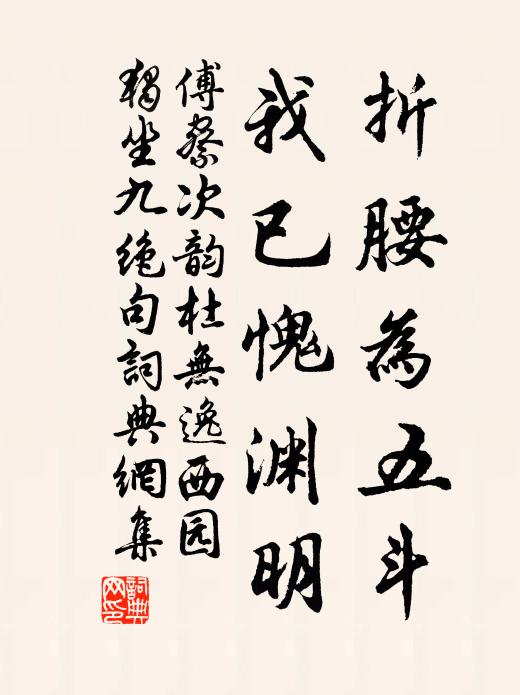 折腰為五斗
我已愧渊明
傅察次韵杜無逸西园
獨坐九絶句詞典網集
詞典網印